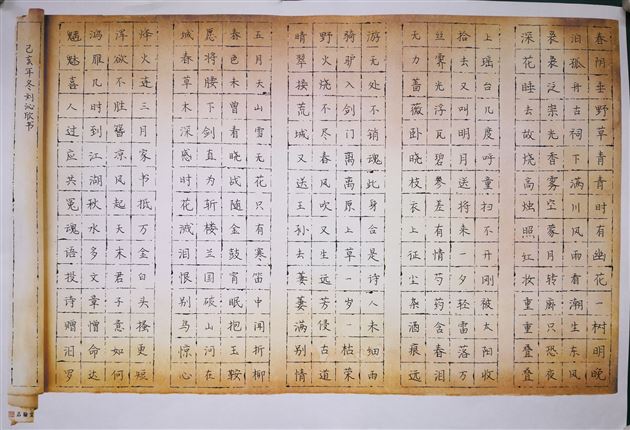 春阴垂野草青青时有幽花一树明晚
泊孤舟古祠下满川风雨看潮生东风
袅袅泛崇光香雾空蒙月转廊只恐夜
深花睡去故烧高烛照红妆重重叠叠
上瑶台几度呼童扫不开刚被太阳收
拾去又叫明月送将来一夕轻雷落万
丝霁光浮瓦碧参差有情芍药含春泪
无力蔷薇卧晓枝衣上征尘杂酒痕远
游无处不销魂此身合是诗人未细雨
骑驴入剑门离离原上草一岁一枯荣
野火烧不尽春风吹又生远芳侵古道
晴翠接荒城又送王孙去萋萋满别情
五月天山雪无花只有寒笛中闻折柳
春色未曾看晓战随金鼓宵眠抱玉鞍
愿将腰下剑直为斩楼兰国破山河在
城春草木深感时花溅泪恨别鸟惊心
烽火连三月家书抵万金白头搔更短
浑欲不胜簪凉风起天末君子意如何
鸿雁几时到江湖秋水多文章憎命达
魑魅喜人过应共冤魂语投诗赠汨罗
己亥年冬刘沁欣书